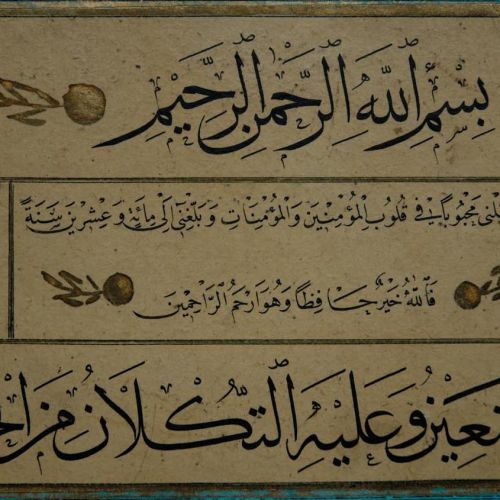 بِسْمِ اللّٰهِ الرَّحْمٰنِ الرَّحِيمِ
محبوبًا في قُلُوبِ الْمُؤْمِنِينَ وَالْمُؤْمِنَاتِ وَبَلِّغْنِي إِلَى مِائَةٍ وَعِشْرِينَ سَنَةً
فَاللّٰهُ خَيْرٌ حَافِظًا وَهُوَ أَرْحَمُ الرَّاحِمِينَ
وَعَلَيْهِ التُّكْلَانُ مِنَ